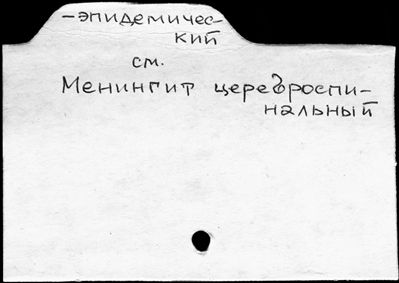 -эпидемичес-
кий
см.
Менингит цереброспи-
нальный